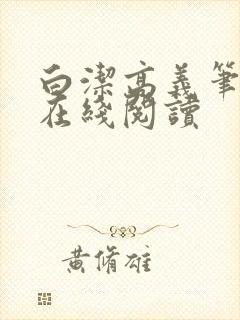 白潔高義筆
在綫閱讀
黃脩雄